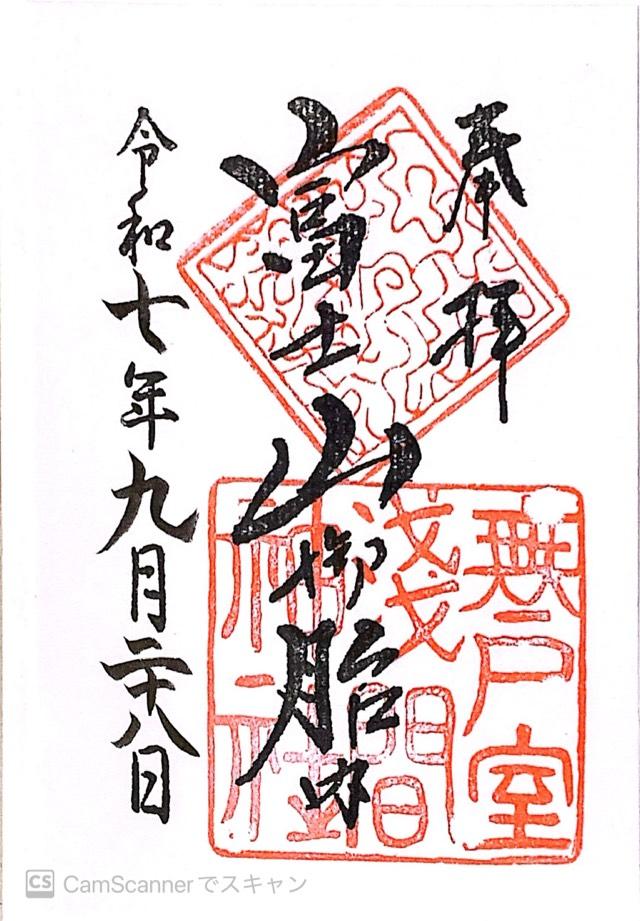 奉拝
富士山御胎内
令和七年九月二十八日
無戸室
浅間
神社
CS CamScannerでスキャン